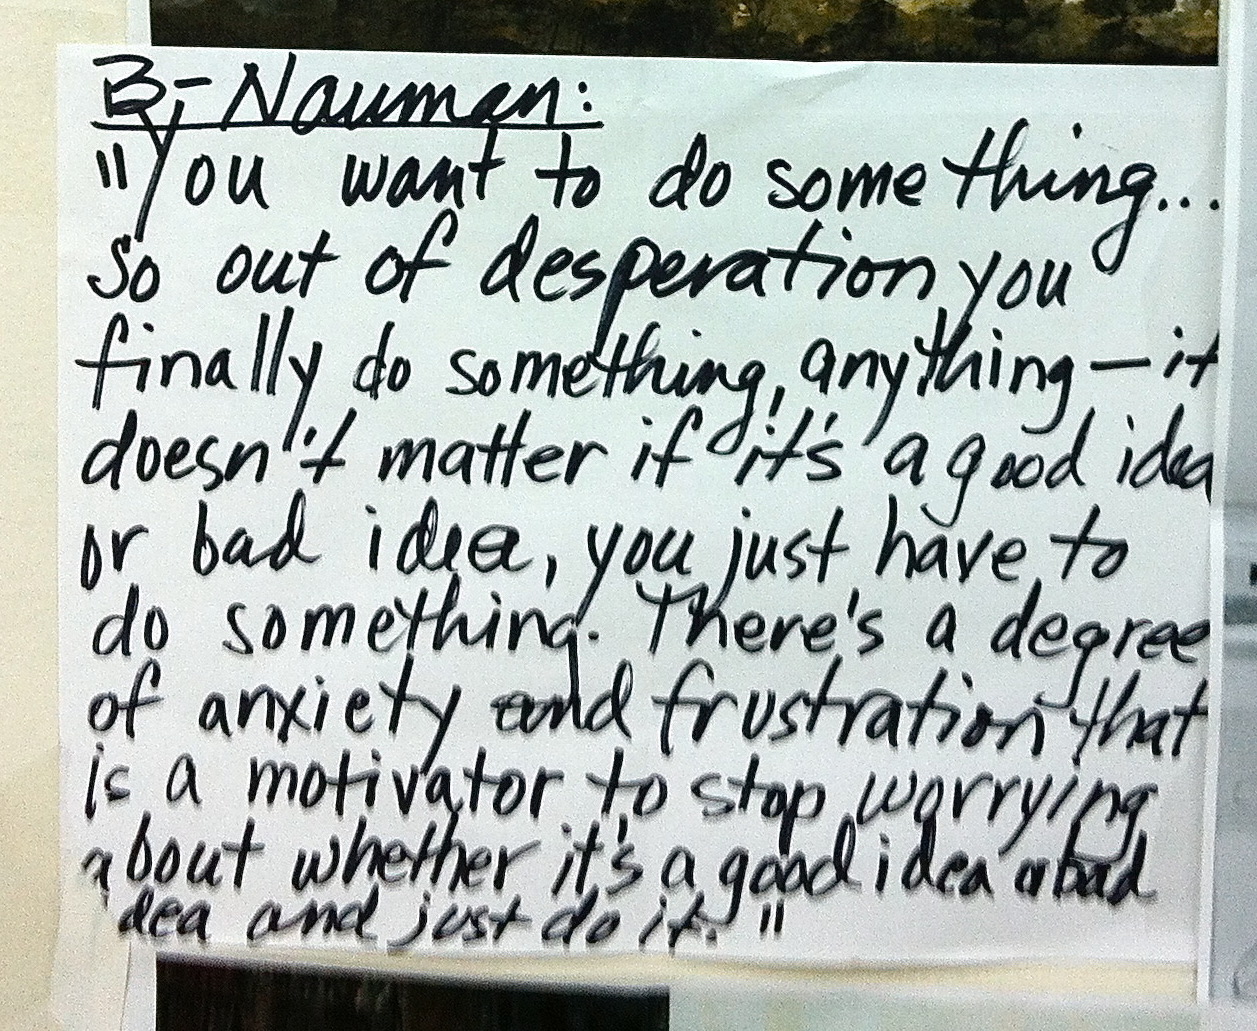 B. Nauman:
"You want to do something...
so out of desperation you
finally do something, anything — it
doesn't matter if it's a good idea
or bad idea, you just have to
do something. There's a degree
of anxiety and frustration that
is a motivator to stop worrying
about whether it's a good idea or bad
idea and just do it."